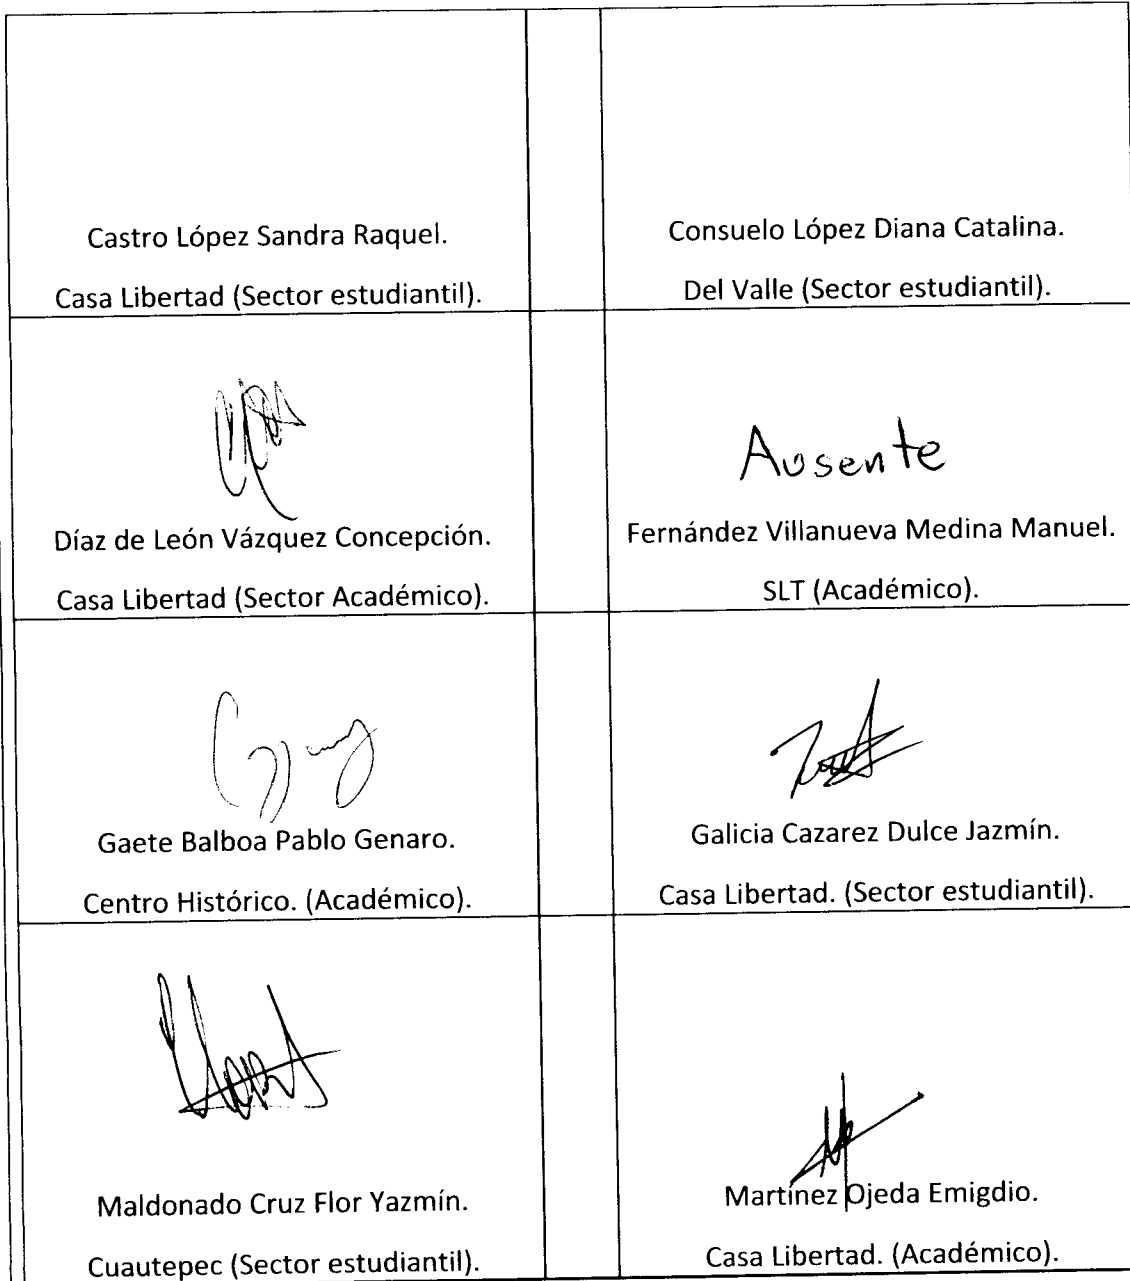 Castro López Sandra Raquel.
Casa Libertad (Sector estudiantil).
Consuelo López Diana Catalina.
Del Valle (Sector estudiantil).
Díaz de León Vázquez Concepción.
Casa Libertad (Sector Académico).
Ausente
Fernández Villanueva Medina Manuel.
SLT (Académico).
Gaete Balboa Pablo Genaro.
Centro Histórico. (Académico).
Galicia Cazarez Dulce Jazmín.
Casa Libertad. (Sector estudiantil).
Maldonado Cruz Flor Yazmín.
Cuautepec (Sector estudiantil).
Martínez Ojeda Emigdio.
Casa Libertad. (Académico).